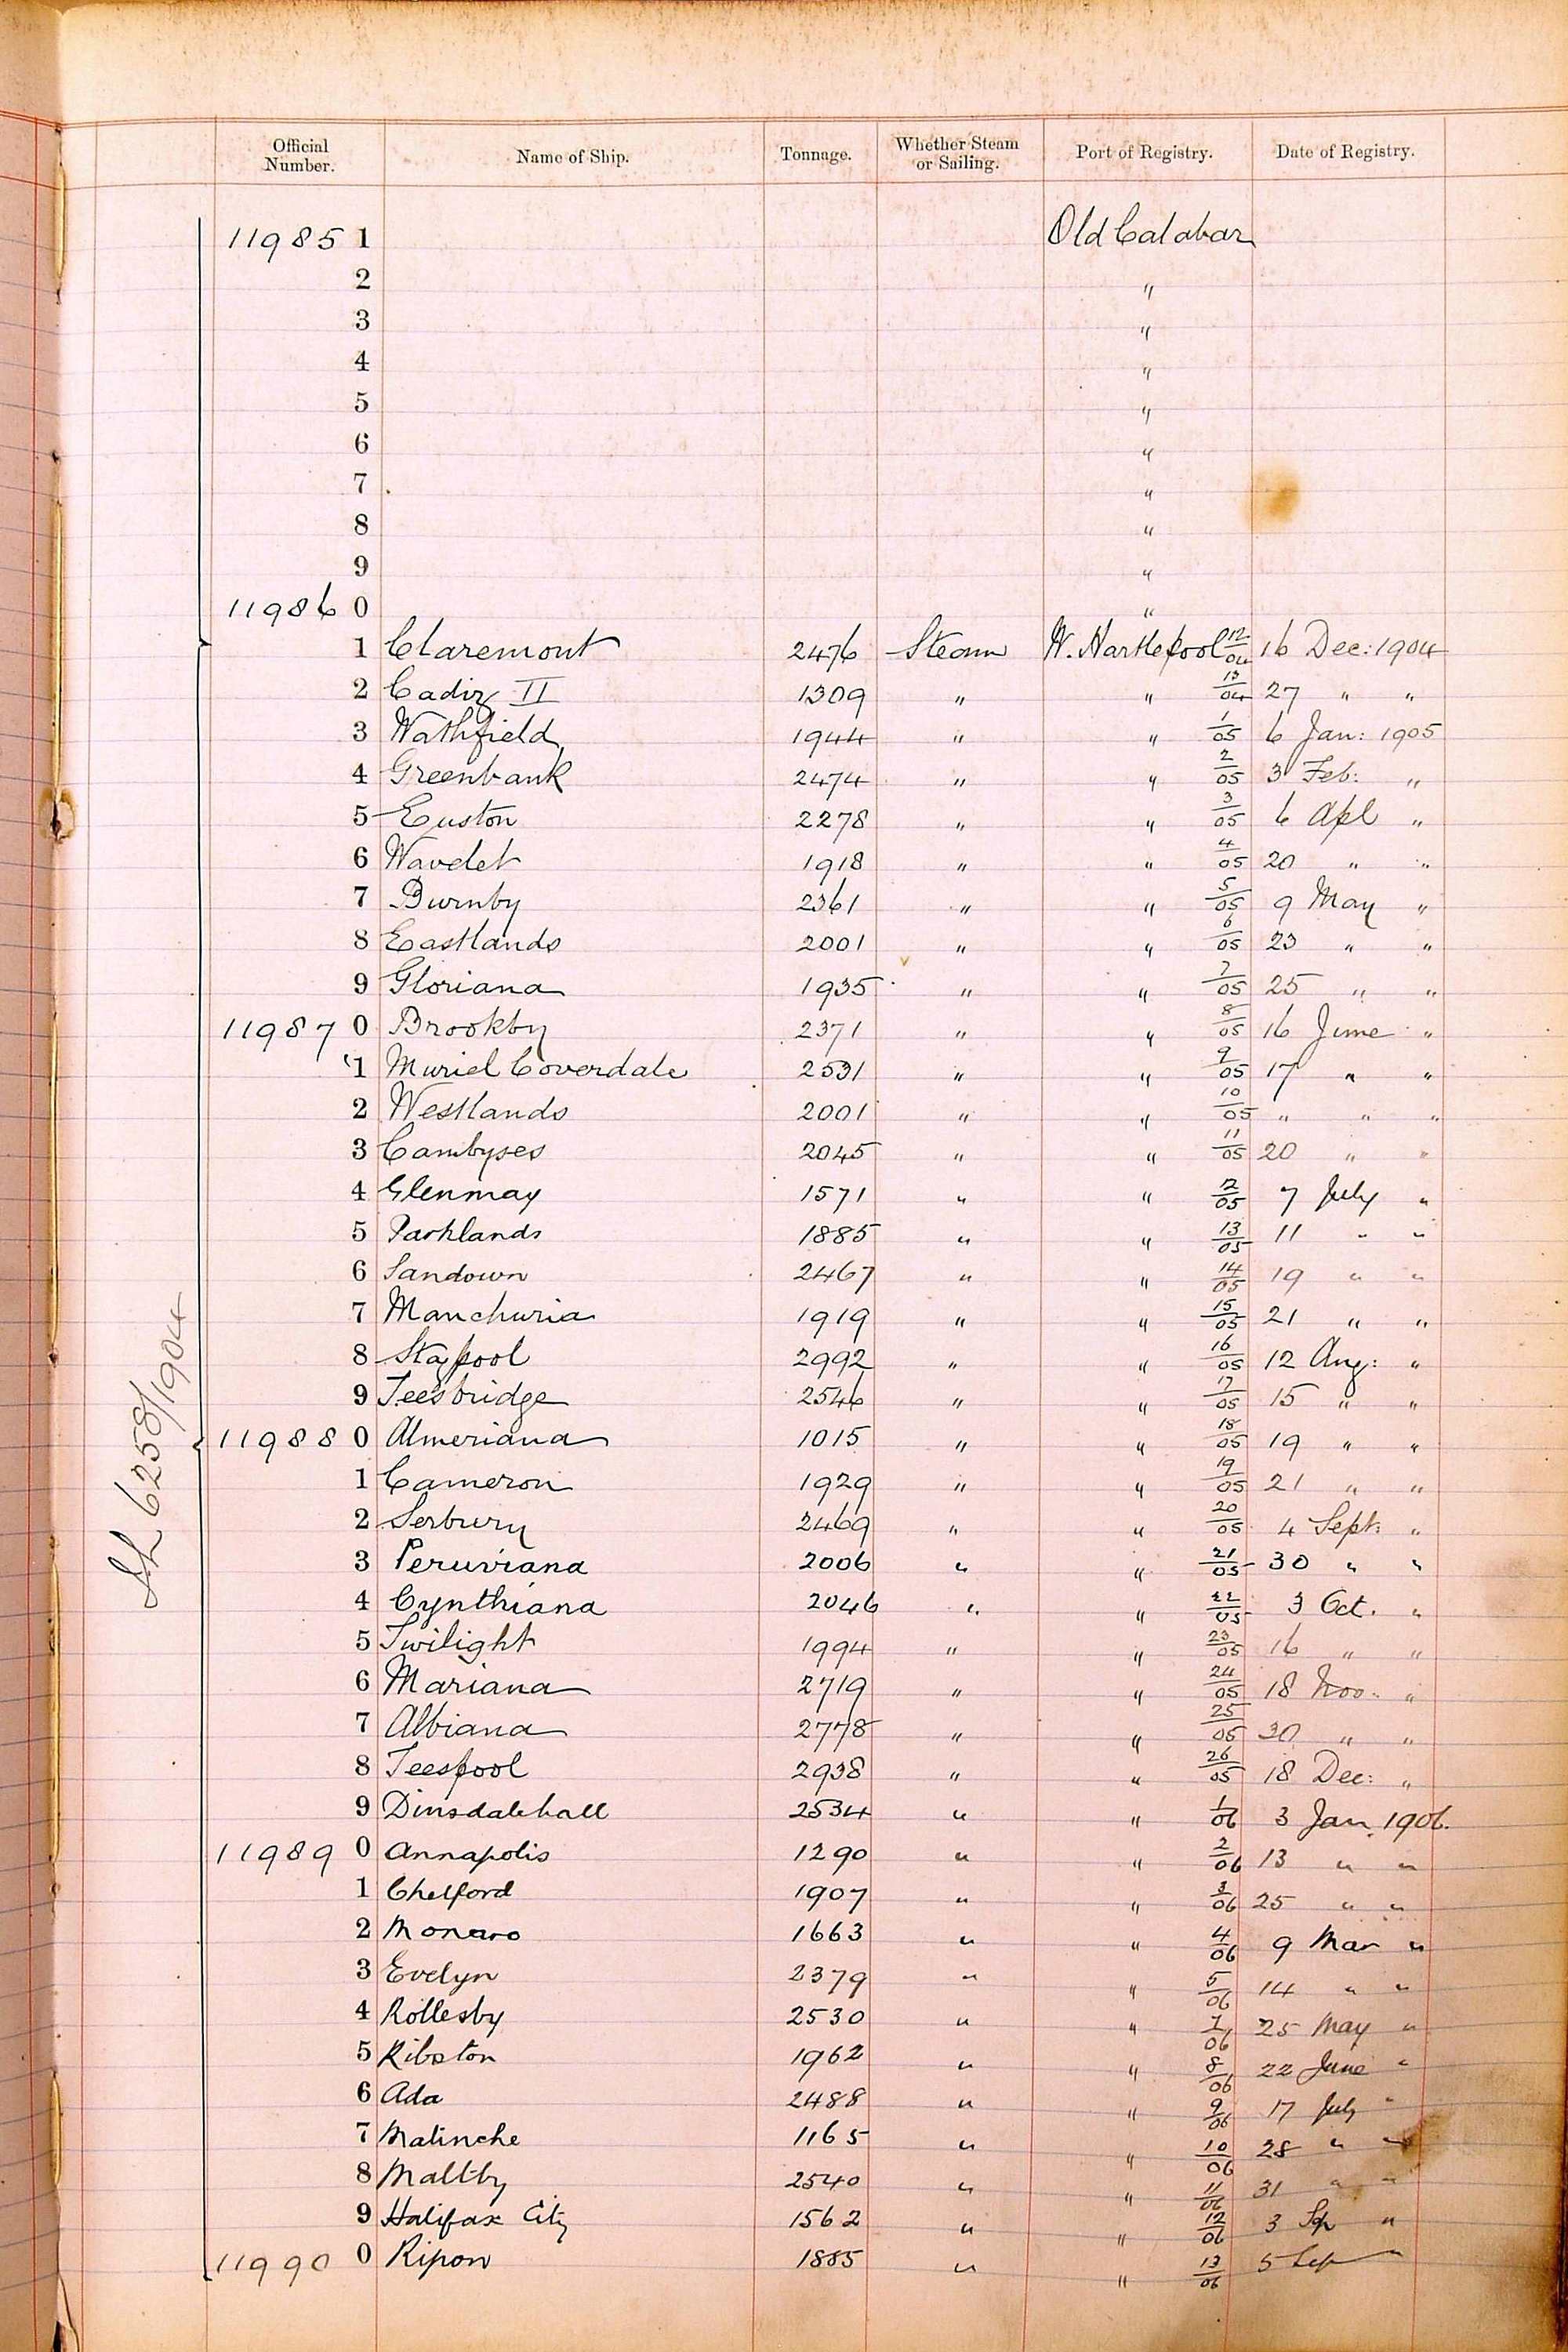 Official Number. Name of Ship. Tonnage. Whether Steam or Sailing. Port of Registry. Date of Registry.
11985 1 Old Calabar
2 "
3 "
4 "
5 "
6 "
7 "
8 "
9 "
11986 0 "
1 Claremont 2476 Steam W. Hartlepool 12/04 16 Dec: 1904
2 Cadiz II 1309 " " 13/04 27 " "
3 Wathfield 1944 " " 1/05 6 Jan: 1905
4 Greenbank 2474 " " 2/05 3 Feb: "
5 Euston 2278 " " 3/05 6 Apl "
6 Wavelet 1918 " " 4/05 20 " "
7 Burnby 2361 " " 5/05 9 May "
8 Eastlands 2001 " " 6/05 23 " "
9 Gloriana 1935 " " 7/05 25 " "
11987 0 Brookby 2371 " " 8/05 16 June "
1 Muriel Coverdale 2531 " " 9/05 17 " "
2 Westlands 2001 " " 10/05 " " "
3 Cambyses 2045 " " 11/05 20 " "
4 Glenmay 1571 " " 12/05 7 July "
5 Parklands 1885 " " 13/05 11 " "
6 Sandown 2467 " " 14/05 19 " "
7 Manchuria 1919 " " 15/05 21 " "
8 Stagpool 2992 " " 16/05 12 Aug: "
9 Teesbridge 2546 " " 17/05 15 " "
11988 0 Almeriana 1015 " " 18/05 19 " "
1 Cameron 1929 " " 19/05 21 " "
2 Serbury 2469 " " 20/05 4 Sept: "
3 Peruviana 2006 " " 21/05 30 " "
4 Cynthiana 2046 " " 22/05 3 Oct. "
5 Twilight 1994 " " 23/05 16 " "
6 Mariana 2719 " " 24/05 18 Nov: "
7 Albiana 2778 " " 25/05 30 " "
8 Teespool 2938 " " 26/05 18 Dec: "
9 Dinsdalehall 2534 " " 1/06 3 Jan. 1906.
11989 0 Annapolis 1290 " " 2/06 13 " "
1 Chelford 1907 " " 3/06 25 " "
2 Monaro 1663 " " 4/06 9 Mar "
3 Evelyn 2379 " " 5/06 14 " "
4 Rollesby 2530 " " 7/06 25 May "
5 Ribston 1962 " " 8/06 22 June "
6 Ada 2488 " " 9/06 17 July "
7 Malinche 1165 " " 10/06 28 " "
8 Maltby 2540 " " 11/06 31 " "
9 Halifax City 1562 " " 12/06 3 Sep "
11990 0 Ripon 1885 " " 13/06 5 Sep "
6258/1904